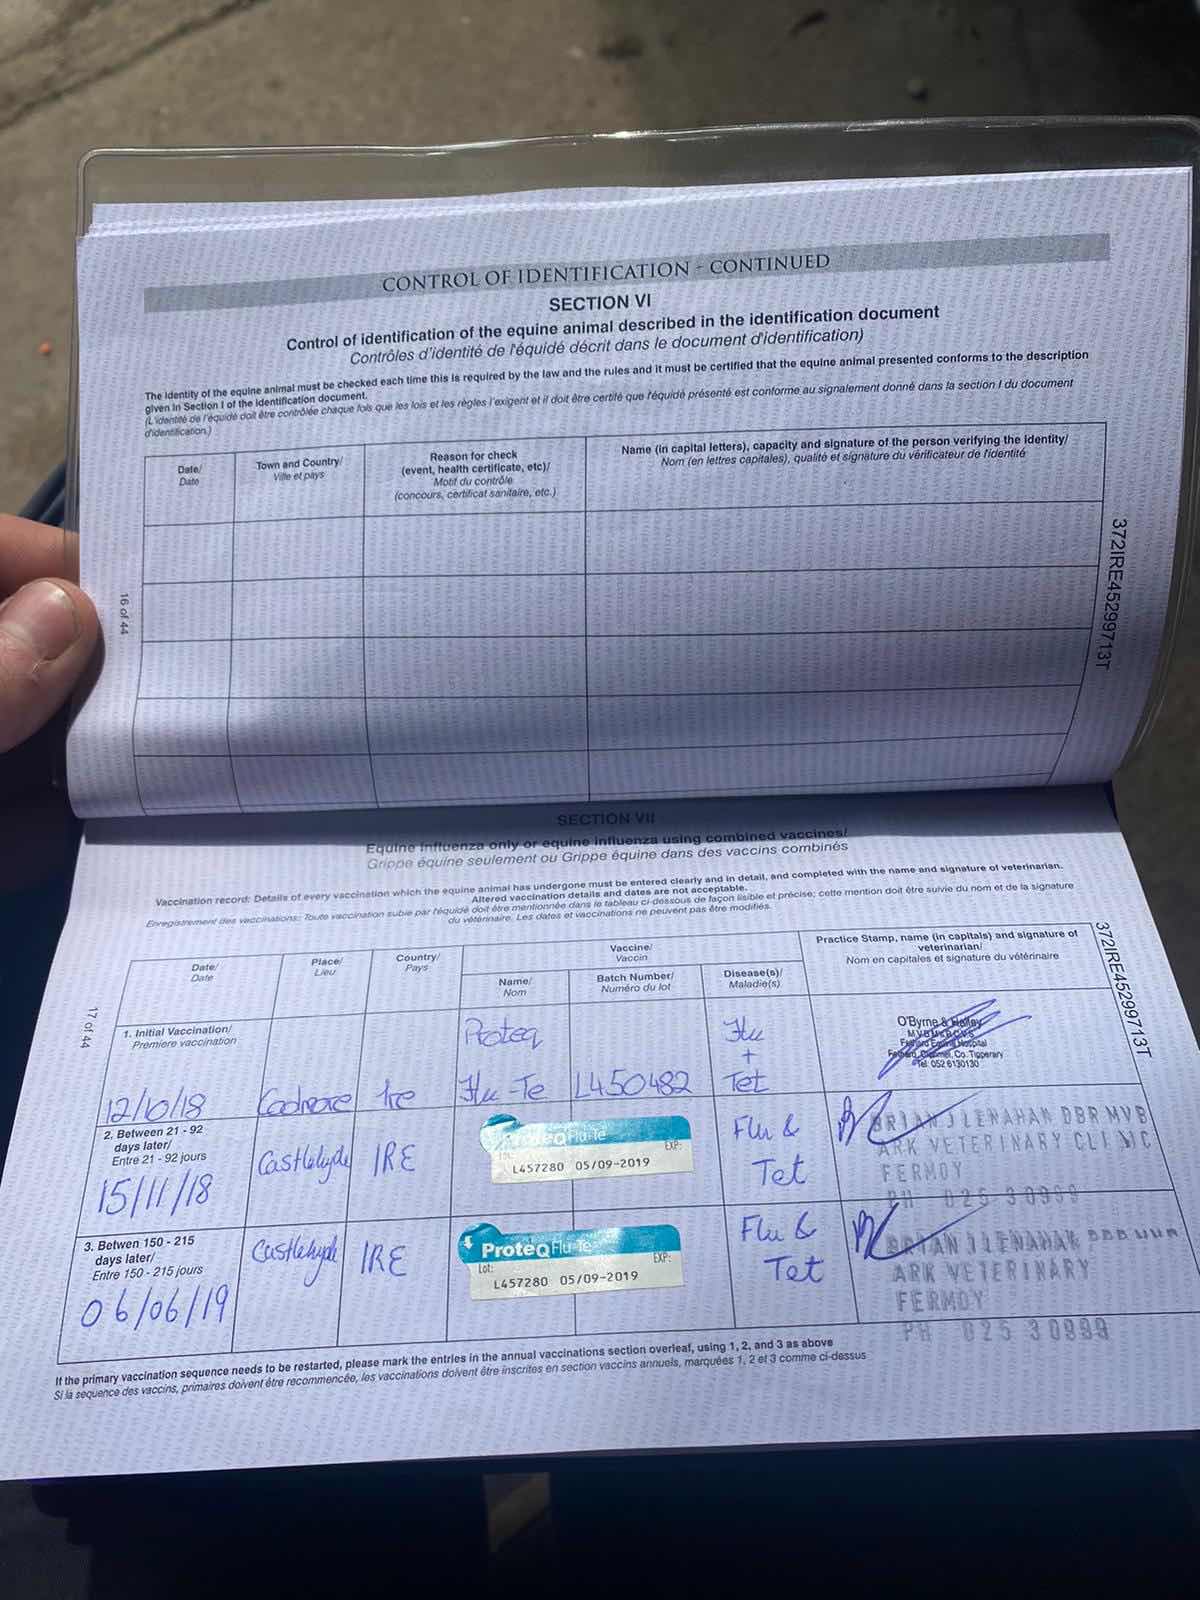 CONTROL OF IDENTIFICATION - CONTINUED
SECTION VI
Control of identification of the equine animal described in the identification document
Contrôles d'identité de l'équidé décrit dans le document d'identification)
The identity of the equine animal must be checked each time this is required by the law and the rules and it must be certified that the equine animal presented conforms to the description
given in Section I of the identification document.
(L'identité de l'équidé doit être contrôlée chaque fois que les lois et les règles l'exigent et il doit être certifié que l'équidé présenté est conforme au signalement donné dans la section I du document
d'identification.)
Date/
Date
Town and Country/
Ville et pays
Reason for check
(event, health certificate, etc)/
Motif du contrôle
(concours, certificat sanitaire, etc.)
Name (in capital letters), capacity and signature of the person verifying the identity/
Nom (en lettres capitales), qualité et signature du vérificateur de l'identité
16 of 44
372IRE45299713T
SECTION VII
Equine influenza only or equine influenza using combined vaccines/
Grippe équine seulement ou Grippe équine dans des vaccins combinés
Vaccination record: Details of every vaccination which the equine animal has undergone must be entered clearly and in detail, and completed with the name and signature of veterinarian.
Altered vaccination details and dates are not acceptable.
Enregistrement des vaccinations: Toute vaccination subie par l'équidé doit être mentionnée dans le tableau ci-dessous de façon lisible et précise; cette mention doit être suivie du nom et de la signature
du vétérinaire. Les dates et vaccinations ne peuvent pas être modifiés.
Date/
Date
Place/
Lieu
Country/
Pays
Vaccine/
Vaccin
Name/
Nom
Batch Number/
Numéro du lot
Disease(s)/
Maladie(s)
Practice Stamp, name (in capitals) and signature of
veterinarian/
Nom en capitales et signature du vétérinaire
17 of 44
372IRE45299713T
1. Initial Vaccination/
Premiere vaccination
12/10/18
Ire
Proteq
Flu-Te
L450482
Flu
+
Tet
O'Byrne & Halley
Fethard Equine Hospital
Fethard, Clonmel, Co. Tipperary
Tel: 052 6130130
2. Between 21 - 92
days later/
Entre 21 - 92 jours
15/11/18
Castlehyde
IRE
ProteqFlu-Te
Lot:
EXP:
L457280 05/09-2019
Flu &
Tet
BRIAN J LENAHAN DBR MVB
ARK VETERINARY CLINIC
FERMOY
PH 025 30999
3. Betwen 150 - 215
days later/
Entre 150 - 215 jours
06/06/19
Castlehyde
IRE
ProteqFlu-Te
Lot:
EXP:
L457280 05/09-2019
Flu &
Tet
BRIAN J LENAHAN DBR MVB
ARK VETERINARY
FERMOY
PH 025 30999
If the primary vaccination sequence needs to be restarted, please mark the entries in the annual vaccinations section overleaf, using 1, 2, and 3 as above
Si la sequence des vaccins, primaires doivent être recommencée, les vaccinations doivent être inscrites en section vaccins annuels, marquées 1, 2 et 3 comme ci-dessus